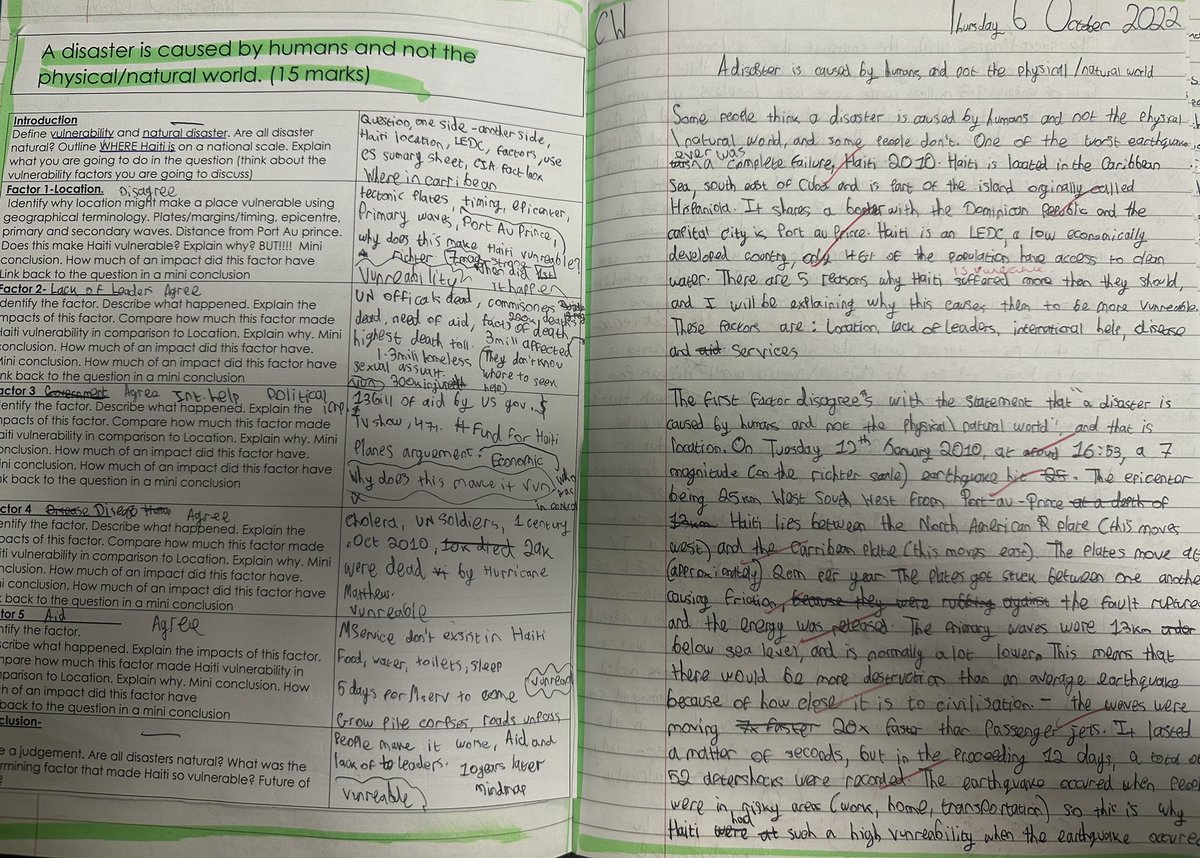 A disaster is caused by humans and not the
physical/natural world. (15 marks)
Introduction
Define vulnerability and natural disaster. Are all disaster
natural? Outline WHERE Haiti is on a national scale. Explain
what you are going to do in the question (think about the
vulnerability factors you are going to discuss)
Question, one side - another side,
Haiti location, LEDC, factors, use
CS sumary sheet, CIA fact box
Where in carribean
Factor 1-Location. Disagree
Identify why location might make a place vulnerable using
geographical terminology. Plates/margins/timing, epicentre,
primary and secondary waves. Distance from Port Au prince.
Does this make Haiti vulnerable? Explain why? BUT!!!! Mini
conclusion. How much of an impact did this factor have
Link back to the question in a mini conclusion
tectonic plates, timing, epicenter,
Primary waves, Port Au Prince,
why does this make Haiti vunreable?
richter 7 mag strong when did
Vunreability it happen
Factor 2- Lack of Leaders Agree
dentify the factor. Describe what happened. Explain the
mpacts of this factor. Compare how much this factor made
Haiti vulnerability in comparison to Location. Explain why. Mini
conclusion. How much of an impact did this factor have.
Mini conclusion. How much of an impact did this factor have
nk back to the question in a mini conclusion
UN officals dead, commisoners
dead, need of aid, facts of death,
highest death toll. 3mill affected
1.3mill homeless (They don't know
sexual assualt. where to seek
300k injured help)
actor 3 Government Agree Int. help Political
entify the factor. Describe what happened. Explain the
pacts of this factor. Compare how much this factor made
aiti vulnerability in comparison to Location. Explain why. Mini
onclusion. How much of an impact did this factor have.
ini conclusion. How much of an impact did this factor have
nk back to the question in a mini conclusion
13Bill of aid by US gov. $
TV show, 47. # Fund for Haiti
Planes arguement. Economic
Why does this make it vun who was in control
actor 4 Disease Agree
entify the factor. Describe what happened. Explain the
pacts of this factor. Compare how much this factor made
iti vulnerability in comparison to Location. Explain why. Mini
nclusion. How much of an impact did this factor have.
ni conclusion. How much of an impact did this factor have
k back to the question in a mini conclusion
cholera, UN soldiers, 1 century
, Oct 2010, 10k died 29k
were dead by Hurricane
Matthew.
vunreable
ctor 5 Aid Agree
ntify the factor.
scribe what happened. Explain the impacts of this factor.
mpare how much this factor made Haiti vulnerability in
mparison to Location. Explain why. Mini conclusion. How
ch of an impact did this factor have
back to the question in a mini conclusion
MService don't exsist in Haiti
Food, water, toilets, sleep
5 days for Mserv to come vunreab
Grow pile corpses, roads unpass
clusion-
e a judgement. Are all disasters natural? What was the
rmining factor that made Haiti so vulnerable? Future of
?
People make it worse, Aid and
lack of leaders. 10 years later
mindmap
vunreable
CW
Thursday 6 October 2022
A disaster is caused by humans and not the physical/natural world
Some people think a disaster is caused by humans and not the physical
\natural world, and some people don't. One of the worst earthquake
ever was a complete failure, Haiti 2010. Haiti is located in the Caribbean
Sea, south east of Cuba and is part of the island orginally called
Hispaniola. It shares a boader with the Dominican Republic and the
capital city is Port au Prince. Haiti is an LEDC, a low economically
developed country, only 46% of the population have access to clean
water. There are 5 reasons why Haiti suffered more than they should,
is vunreable
and I will be explaining why this causes them to be more vunreable.
Those factors are: location, lack of leaders, international help, disease
and aid services
The first factor disagree's with the statement that "a disaster is
caused by humans and not the physical\natural world" and that is
location. On Tuesday 12th January 2010, at around 16:53, a 7
magnitude (on the richter scale) earthquake hit. The epicentor
being 25km West South West from Port-au-Prince at a depth of
13km. Haiti lies between the North American plate (this moves
west) and the Carribean plate (this moves east). The plates move at
(approximately) 2cm per year. The plates got stuck between one anothe
causing friction, because they were rubbing against the fault rupture
and the energy was released. The primary waves were 13km under
below sea level, and is normally a lot lower. This means that
there would be more destruction than an average earthquake
because of how close it is to civilisation. - the waves were
moving 7x faster 20x faster than passenger jets. It lasted
a matter of seconds, but in the proceeding 12 days, a total of
52 aftershocks were recorded. The earthquake occured when peop
were in risky areas (work, home, transportation) so this is why
Haiti were at had such a high vunreability when the earthquake occure